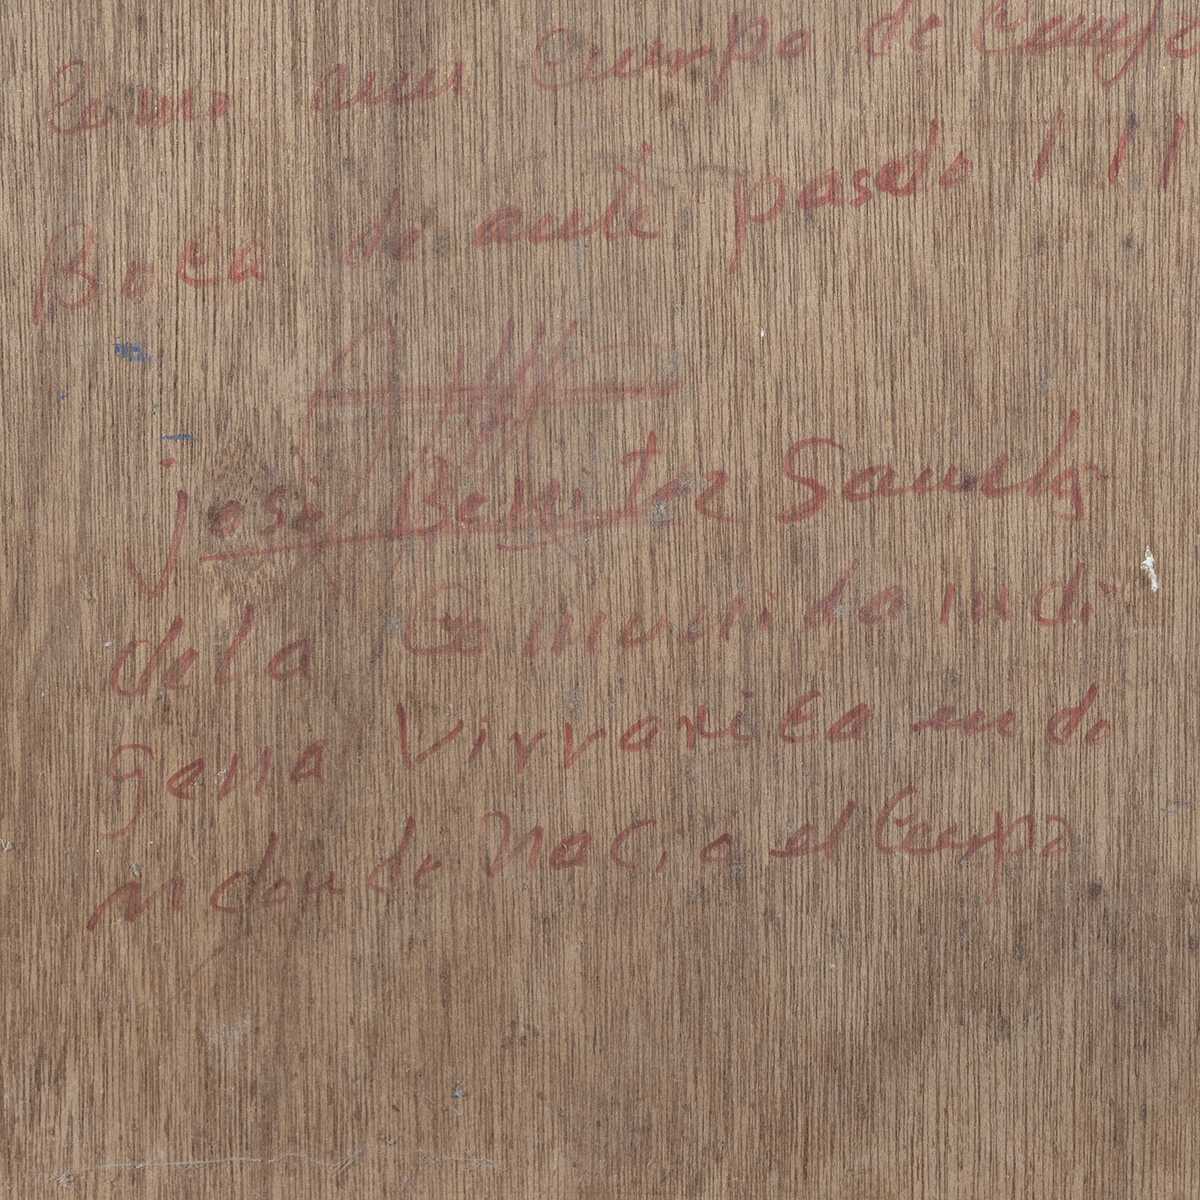 Como un Cuerpo de Cuerpo
Boca de anti pasado ! ! !
josé Benitez Sanchz
dela Comunida indi
gena Virrarica en do
n donde Nació el Cuerpo